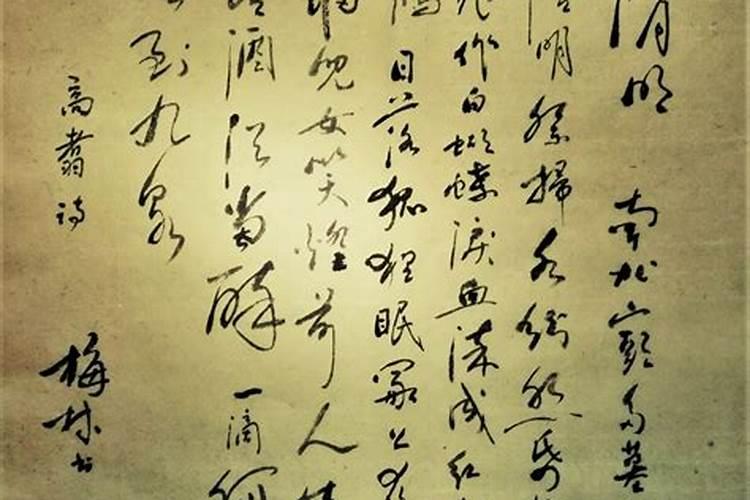 清明 南北山頭多墓
清明祭掃各紛然
飛作白蝴蝶淚血染成紅
鵑日落狐狸眠冢上夜
歸兒女笑燈前人生
酒須當醉一滴何
到九泉
高翥詩
梅林書